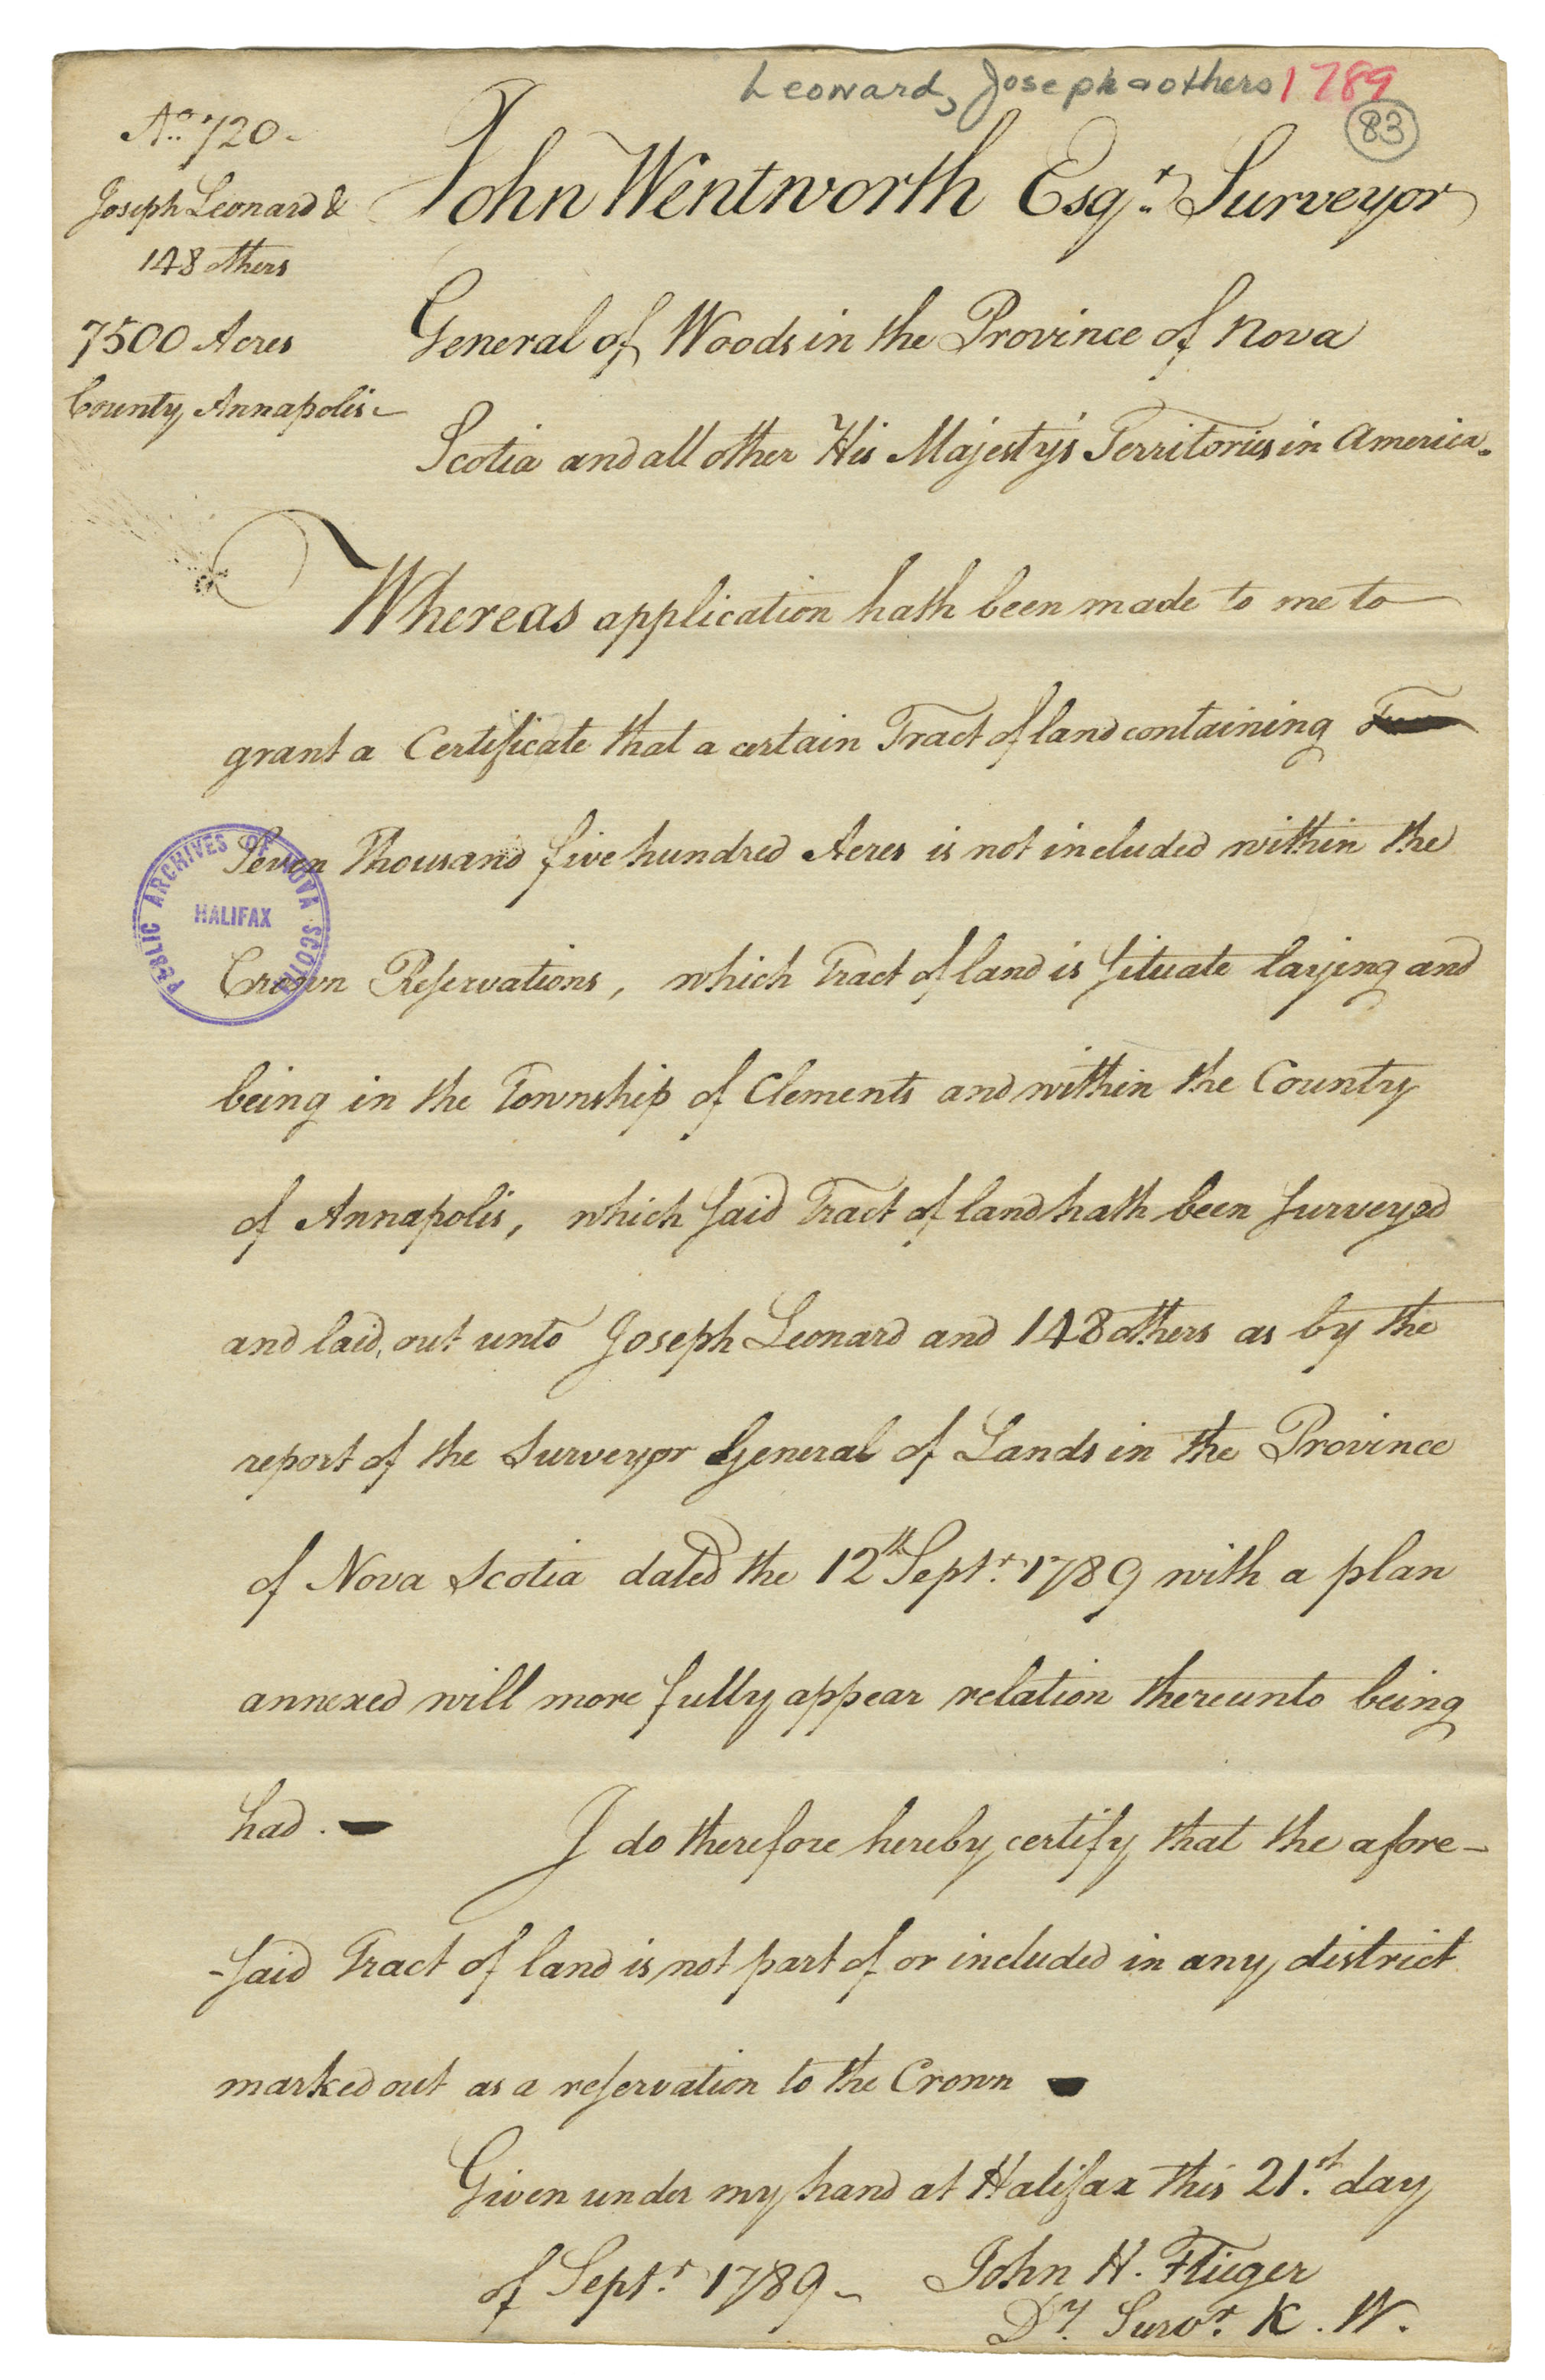 Leonard, Joseph & others 1789
83
No. 720-
Joseph Leonard &
148 others
7500 Acres
County Annapolis-
John Wentworth Esqr. Surveyor
General of Woods in the Province of Nova
Scotia and all other His Majesty's Territories in America.
Whereas application hath been made to me to
grant a Certificate that a certain Tract of land containing
Seven Thousand five hundred Acres is not included within the
Crown Reservations, which Tract of land is Situate laying and
being in the Township of Clements and within the County
of Annapolis, which said Tract of land hath been surveyed
and laid out unto Joseph Leonard and 148 others as by the
report of the Surveyor General of Lands in the Province
of Nova Scotia dated the 12th Septr. 1789 with a plan
annexed will more fully appear relation thereunto being
had. — I do therefore hereby certify that the afore-
-said Tract of land is not part of or included in any district
marked out as a reservation to the Crown —
Given under my hand at Halifax this 21.st day
of Septr. 1789- John H. Flieger
Dy. Survr. K. W.
PUBLIC ARCHIVES OF NOVA SCOTIA
HALIFAX